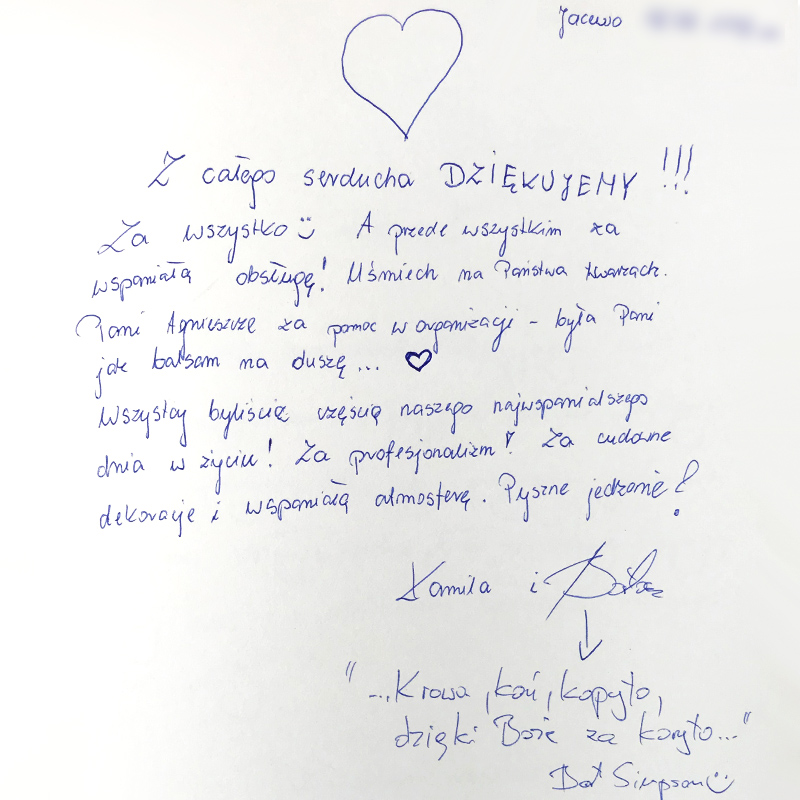 Jacewo
Z całego serducha DZIĘKUJEMY !!!
Za wszystko☺ A przede wszystkim za
wspaniałą obsługę! Uśmiech na Państwa twarzach.
Pani Agnieszce za pomoc w organizacji - była Pani
jak balsam na duszę... ♡
Wszyscy byliście częścią naszego najwspanialszego
dnia w życiu! Za profesjonalizm! Za cudowne
dekoracje i wspaniałą atmosferę. Pyszne jedzonie!
Kamila i
"...Krowa, koń, kopyto,
dzięki Boże za koryto..."
Bart Simpson☺